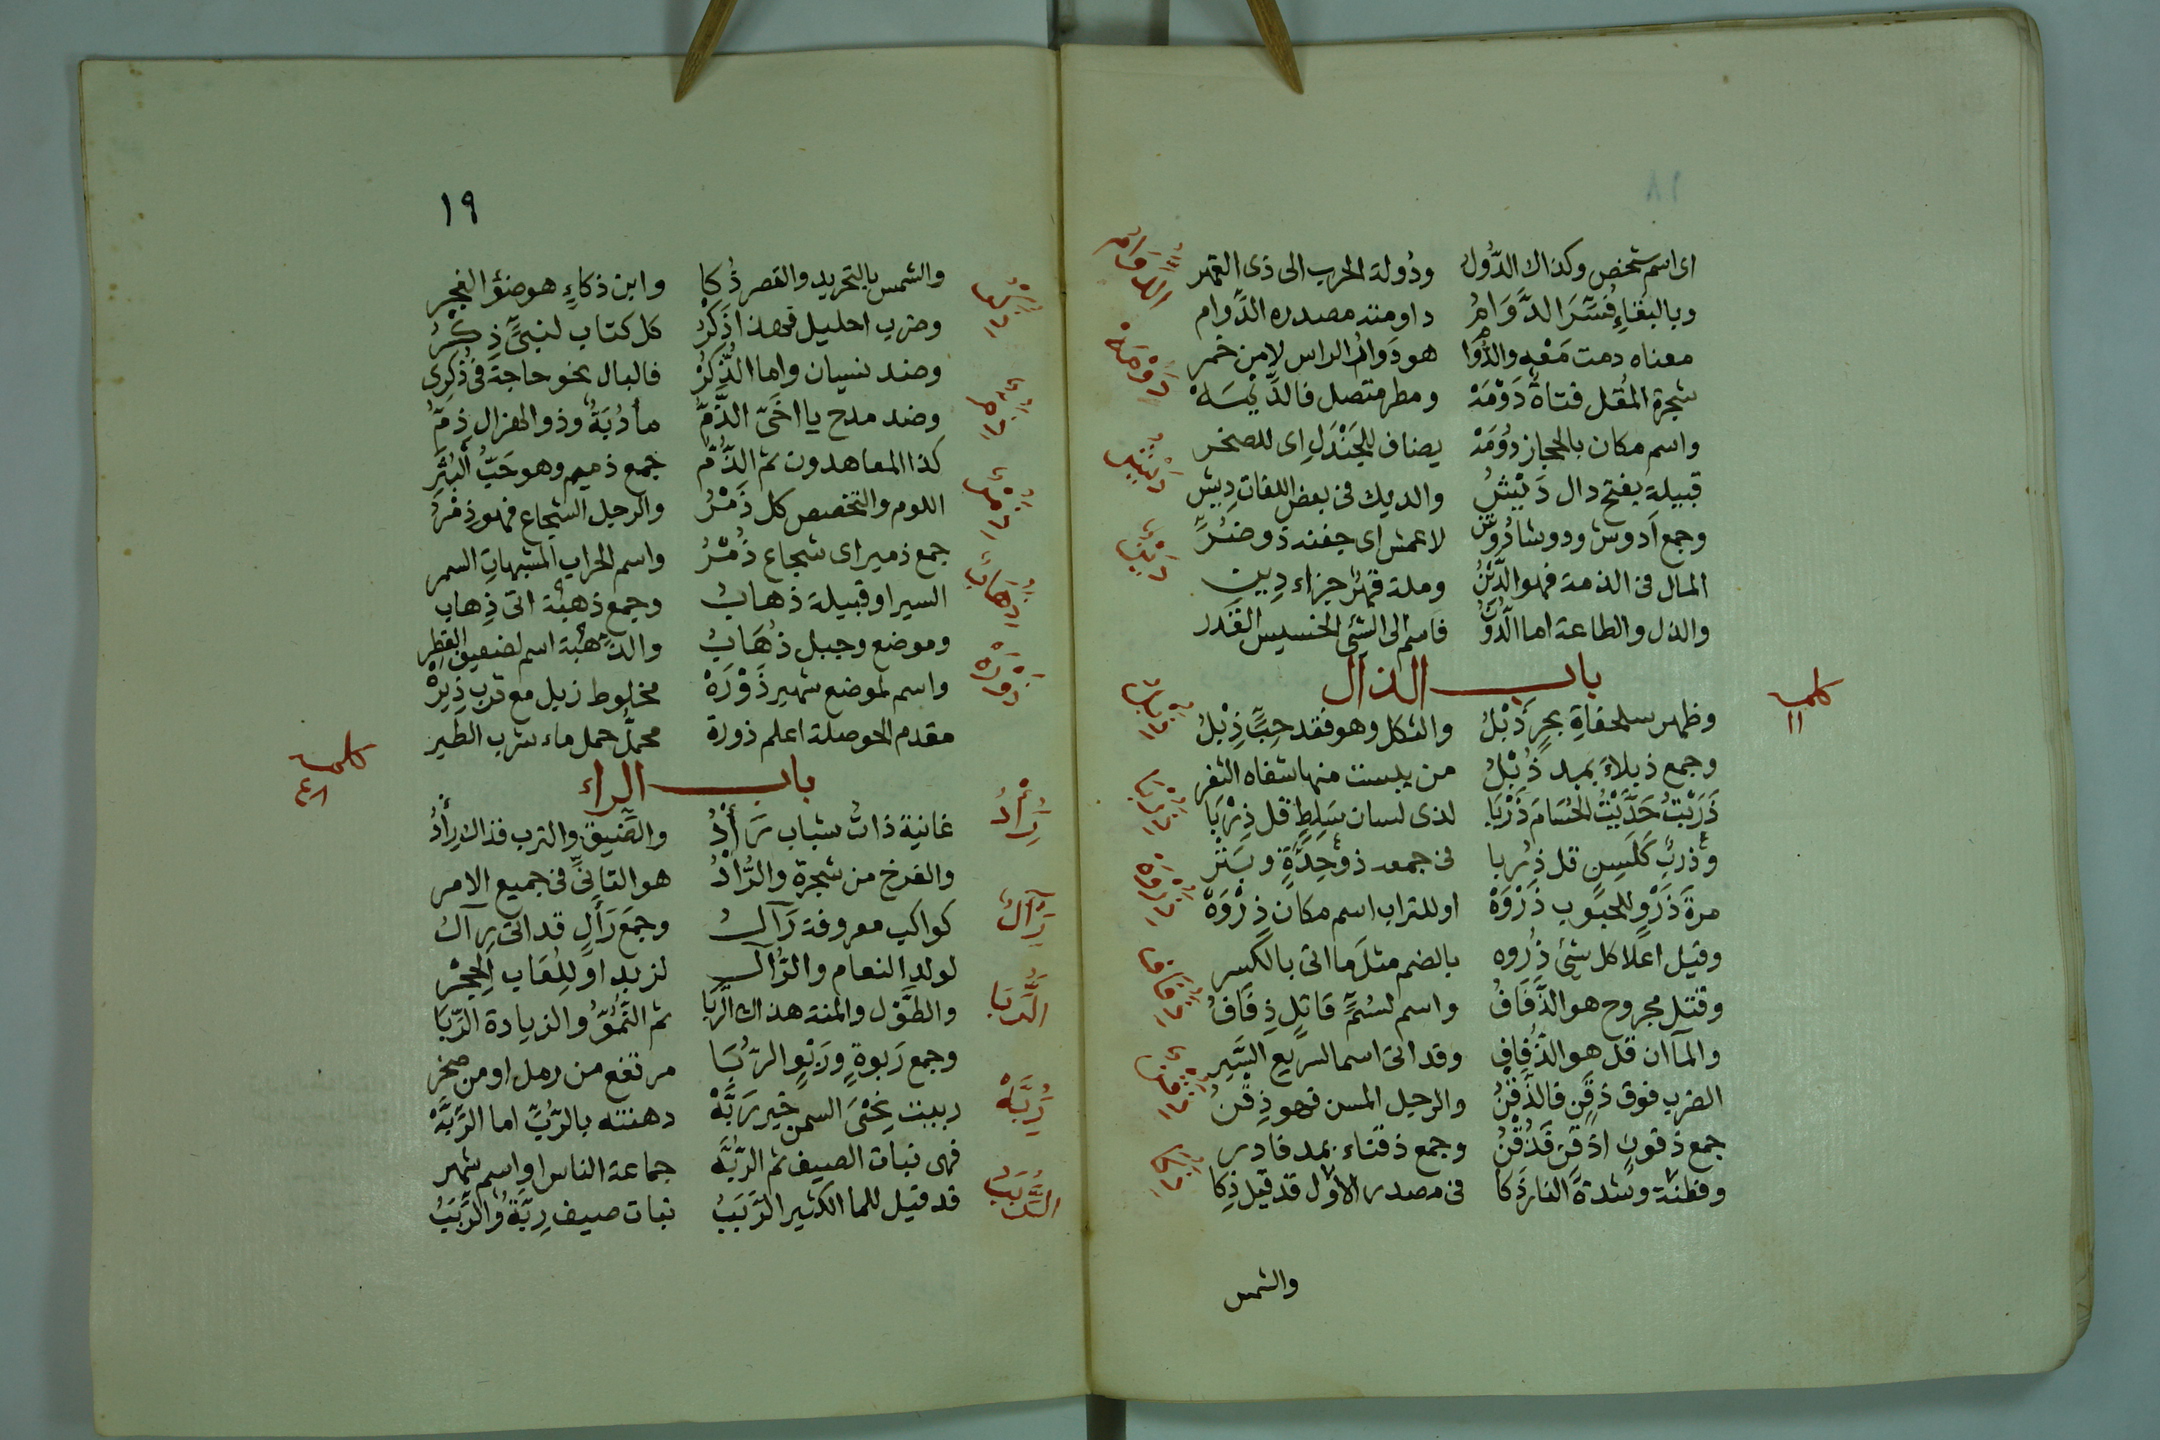 اى اسم شخص وكذاك الدُّوَل ودُولة الحرب الى ذى القهر
وبالبقاءِ فُسِّرَ الدَّوَامُ داومته مصدره الدِّوام
معناه دمت مَعْه والدُّوَا هو دَوامُ الراس لا من خمر
شجرة المُقل فتاةٌ دَوْمَهْ ومطر متصل فالدِّيمَهْ
واسم مكان بالحجاز دُوْمَهْ يضاف للجَنْدَلِ اى للصخر
قبيلة بفتح دال دَيْبشُ والديك فى بعض اللغات دِيش
وجمع اَدوش ودوشا دُوْشُ لاعمش اى جفنه ذو ضُرِّ
المال فى الذمة فهو الدَّيْنُ وملة قهرٌ جزاء دِين
والذل والطاعة اما الدُّوْنُ فاسم الى الشئ الخسيس القَدر
باب الذال
كلمه ١١
وظهر سلحفاةِ بحرٍ ذَبْلُ والثكل وهو فقد حِبٍّ ذِبْلُ
وجمع ذبلاءَ بمد ذُبْلُ من يبست منها شفاه الثغر
ذَرَبْتُ حَدَّيْتُ الحُسَامَ ذَرْبَا لذى لسان سَلِطٍ قل ذِرْبَا
وذربٌ كَلَسِنٍ قل ذُربا فى جمعه ذو حِدَّةٍ وبَتْر
مرة ذَرْوٍ للحبوب ذَرْوَهْ او للتراب اسم مكان ذِرْوَهْ
وقيل اعلا كل شئ ذُروه بالضم مثل ما اتى بالكسر
وقتل مجروح هو الذَّفَافُ واسم لسُمٍّ قَاتِلٍ ذِفَافُ
والمآان قل هو الذُّفاف وقد اتى اسما لسريع السَّير
الضرب فوق ذقَنٍ فالذَّقْنُ والرجل المسن فهو ذِقْنُ
جمع ذقون اذقن فَذُقْنُ وجمع ذقناء بمد فادر
وفطنة وشدة النار ذَكا فى مصدر الاول قد قيل ذِكا
والشمس
الدوام
دَوْمَهْ
ذبل
ذربا
ذروه
ذفاف
ذقن
ذكا
١٩
والشمس بالتجريد والقصر ذُكا وابن ذكاءٍ هو ضوْ الفجر
وضرب احليل فهذا ذَكْرُ كل كتاب لنبىٍّ ذِكْرُ
وضد نسيان واما الذُّكْرُ فالبال نحو حاجة فى ذُكرى
وضد مدح يا اخَىّ الذَّمُّ مأدُبَةٌ وذو الهزال ذِمُّ
كذا المعاهدون ثم الذُّمّ جمع ذميم وهو حَبُّ البُثْرِ
اللوم والتحضيض كل ذَمْرُ والرجل الشجاع فهو ذِمْرُ
جمع ذمير اى شجاع ذُمْرُ واسم الحراب المشبهات السمر
السير او قبيلة ذهابُ وجمع ذهبة اتى ذِهاب
وموضع وجبل ذُهَابُ والذهبة اسم لضعيف القطر
واسم لموضع شهير ذَوْرَهْ مخلوط زبل مع ترب ذِيرَهْ
مقدم الحوصلة اعلم ذورة محمل حمل ماء شرب الطير
باب الراء
كلمه
غانية ذات شباب رَأْدُ والضيق والترب فذاك رِأْدُ
والفرخ من شجرة والرُّأْدُ هو التانّى فى جميع الامر
كواكب معروفة رَآلُ وجمَع رَأْلٍ قد اتى رِآل
لولد النعام والرُّآل لزبد او للُعَاب الحِجْر
والطَّوْل والمنة هذاك الرَّبا ثم النُّمُوُّ والزيادة الرِّبَا
وجمع رَبوةٍ ورَبْوٍ الرُّبَا مرتفع من رمل او من صخر
ربيت نِحْىَ السمن خير رَبَّهْ دهنته بالرُّبِّ اما الرِّبَّهْ
فهى نبات الصيف ثم الرُّبَّه جماعة الناس او اسم شهر
قد قيل للما الكثير الرَّبَبُ نبات صيف رِبَّةٌ والرِّبَبُ
ذكر
ذم
ذمر
ذهاب
ذوره
رأد
رآل
الربا
ربه
الربب